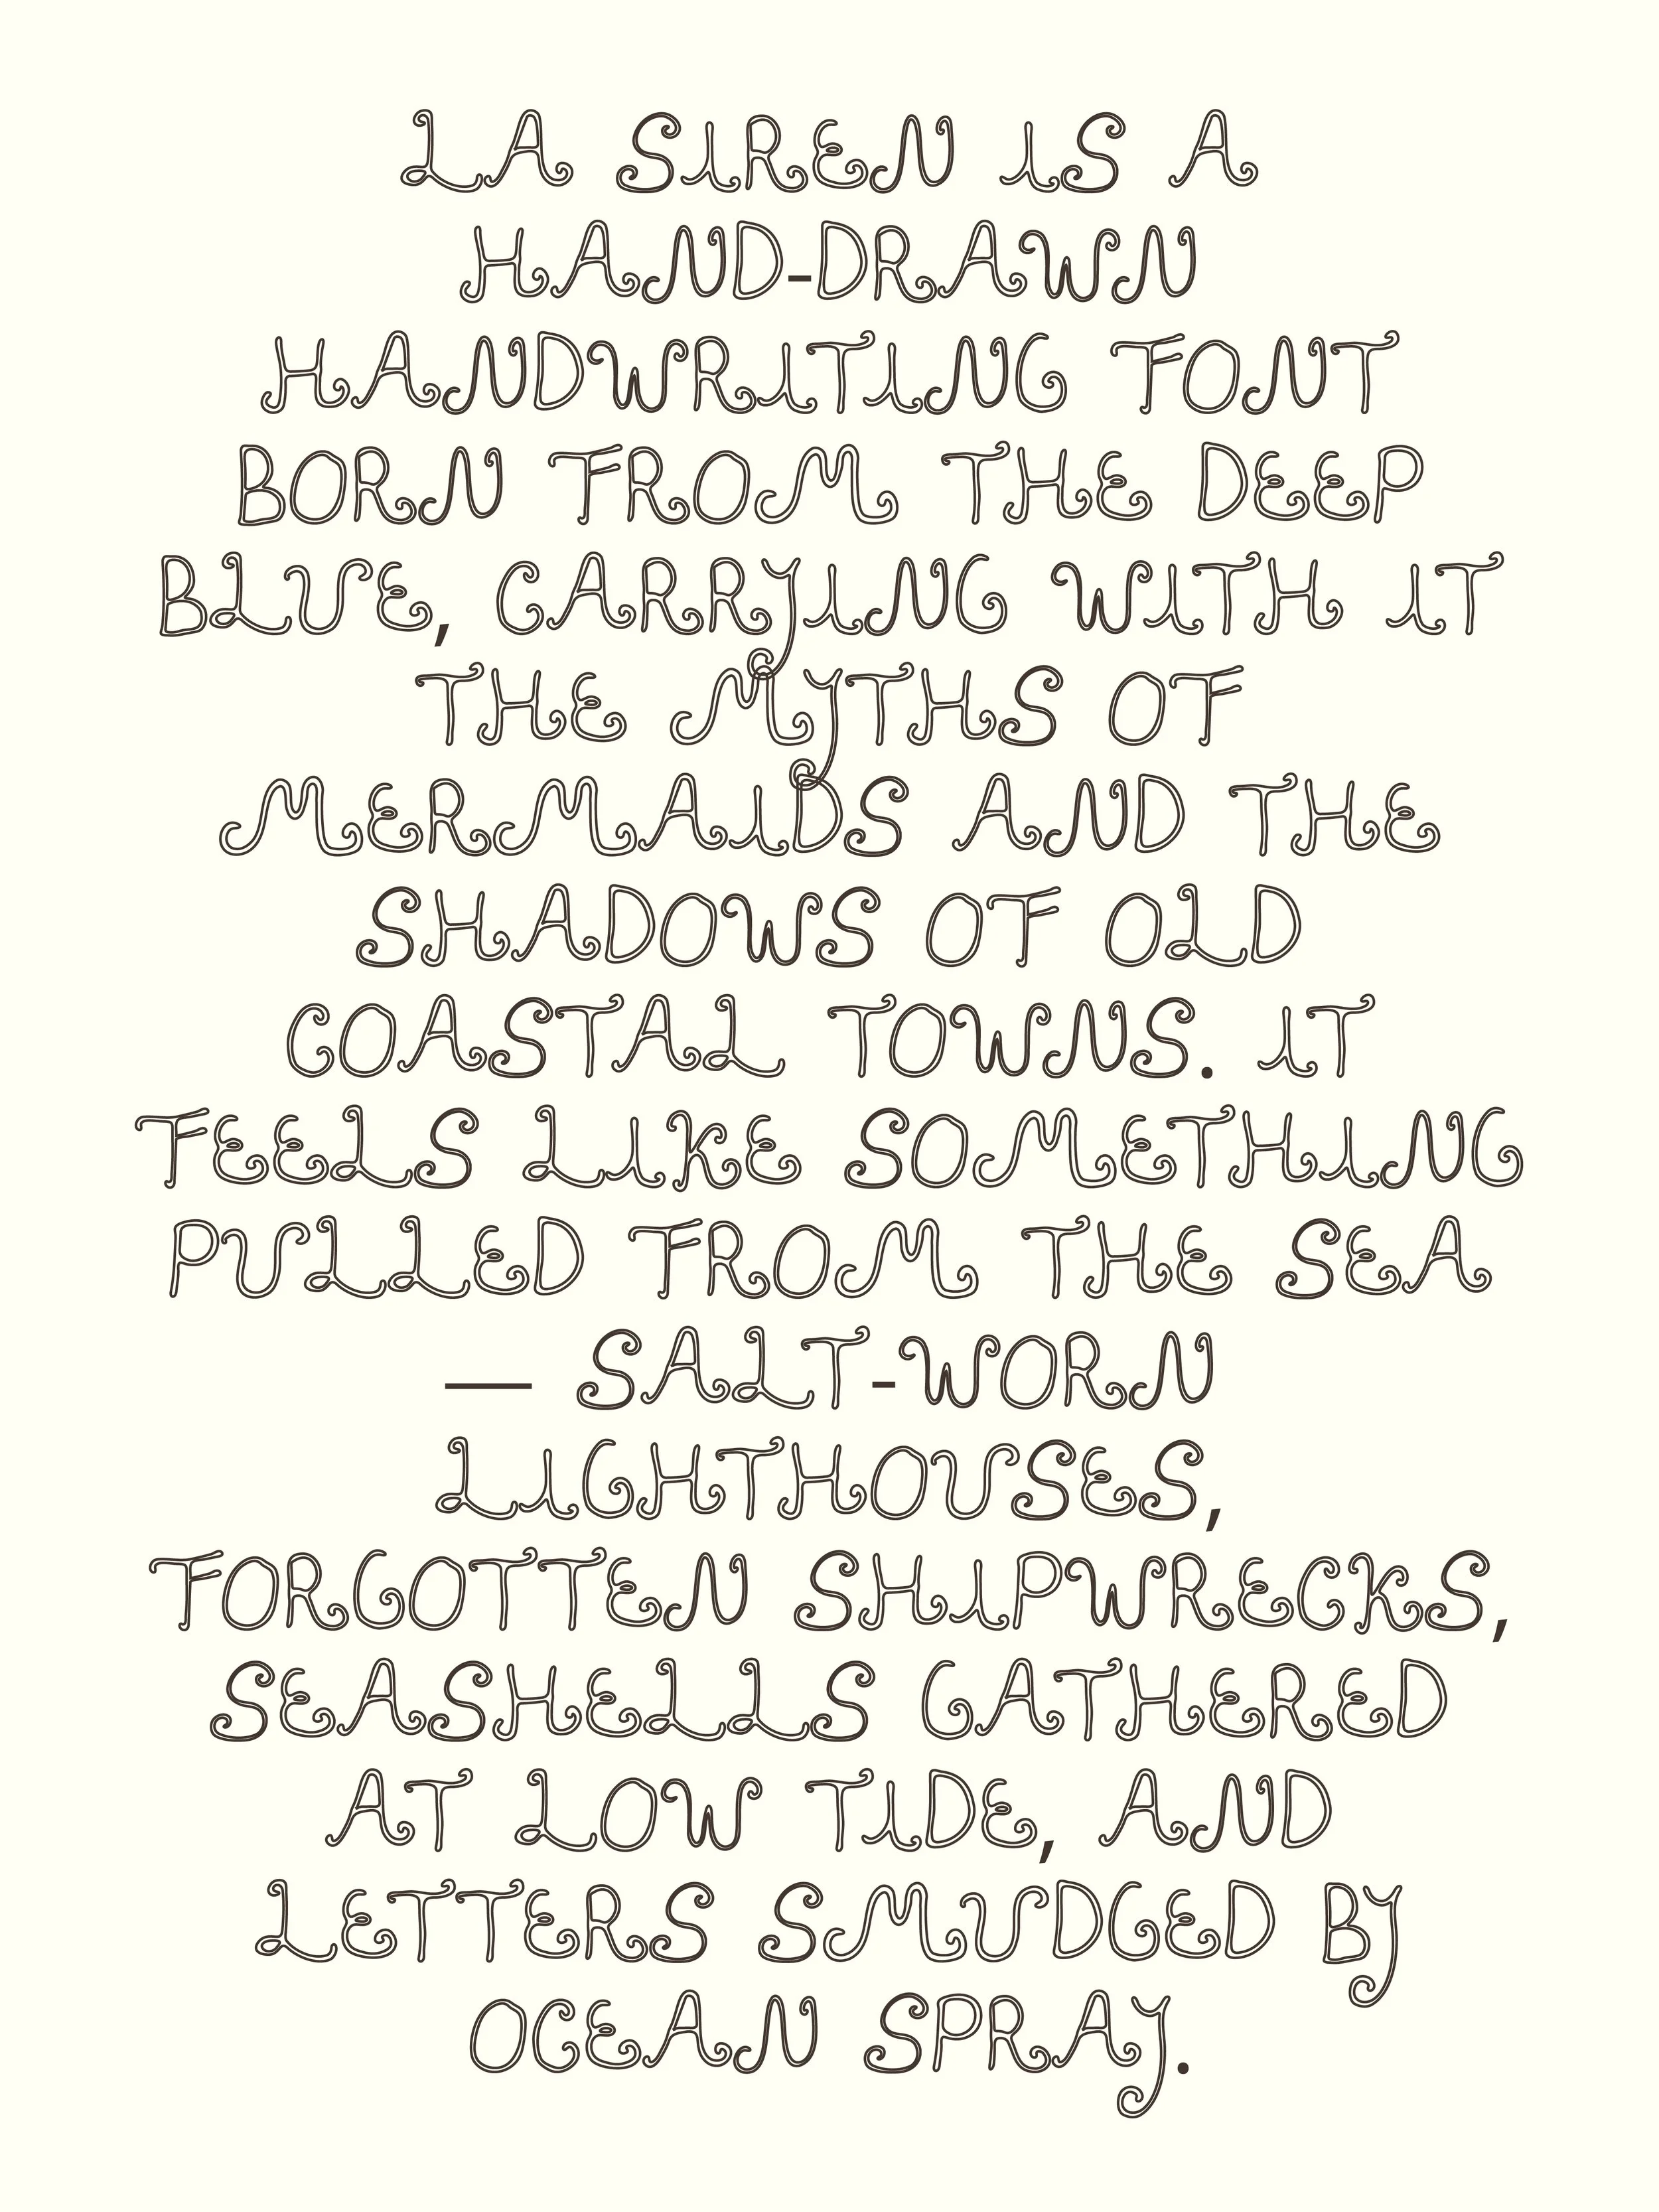 LA SIREN IS A
HAND-DRAWN
HANDWRITING FONT
BORN FROM THE DEEP
BLUE, CARRYING WITH IT
THE MYTHS OF
MERMAIDS AND THE
SHADOWS OF OLD
COASTAL TOWNS. IT
FEELS LIKE SOMETHING
PULLED FROM THE SEA
— SALT-WORN
LIGHTHOUSES,
FORGOTTEN SHIPWRECKS,
SEASHELLS GATHERED
AT LOW TIDE, AND
LETTERS SMUDGED BY
OCEAN SPRAY.